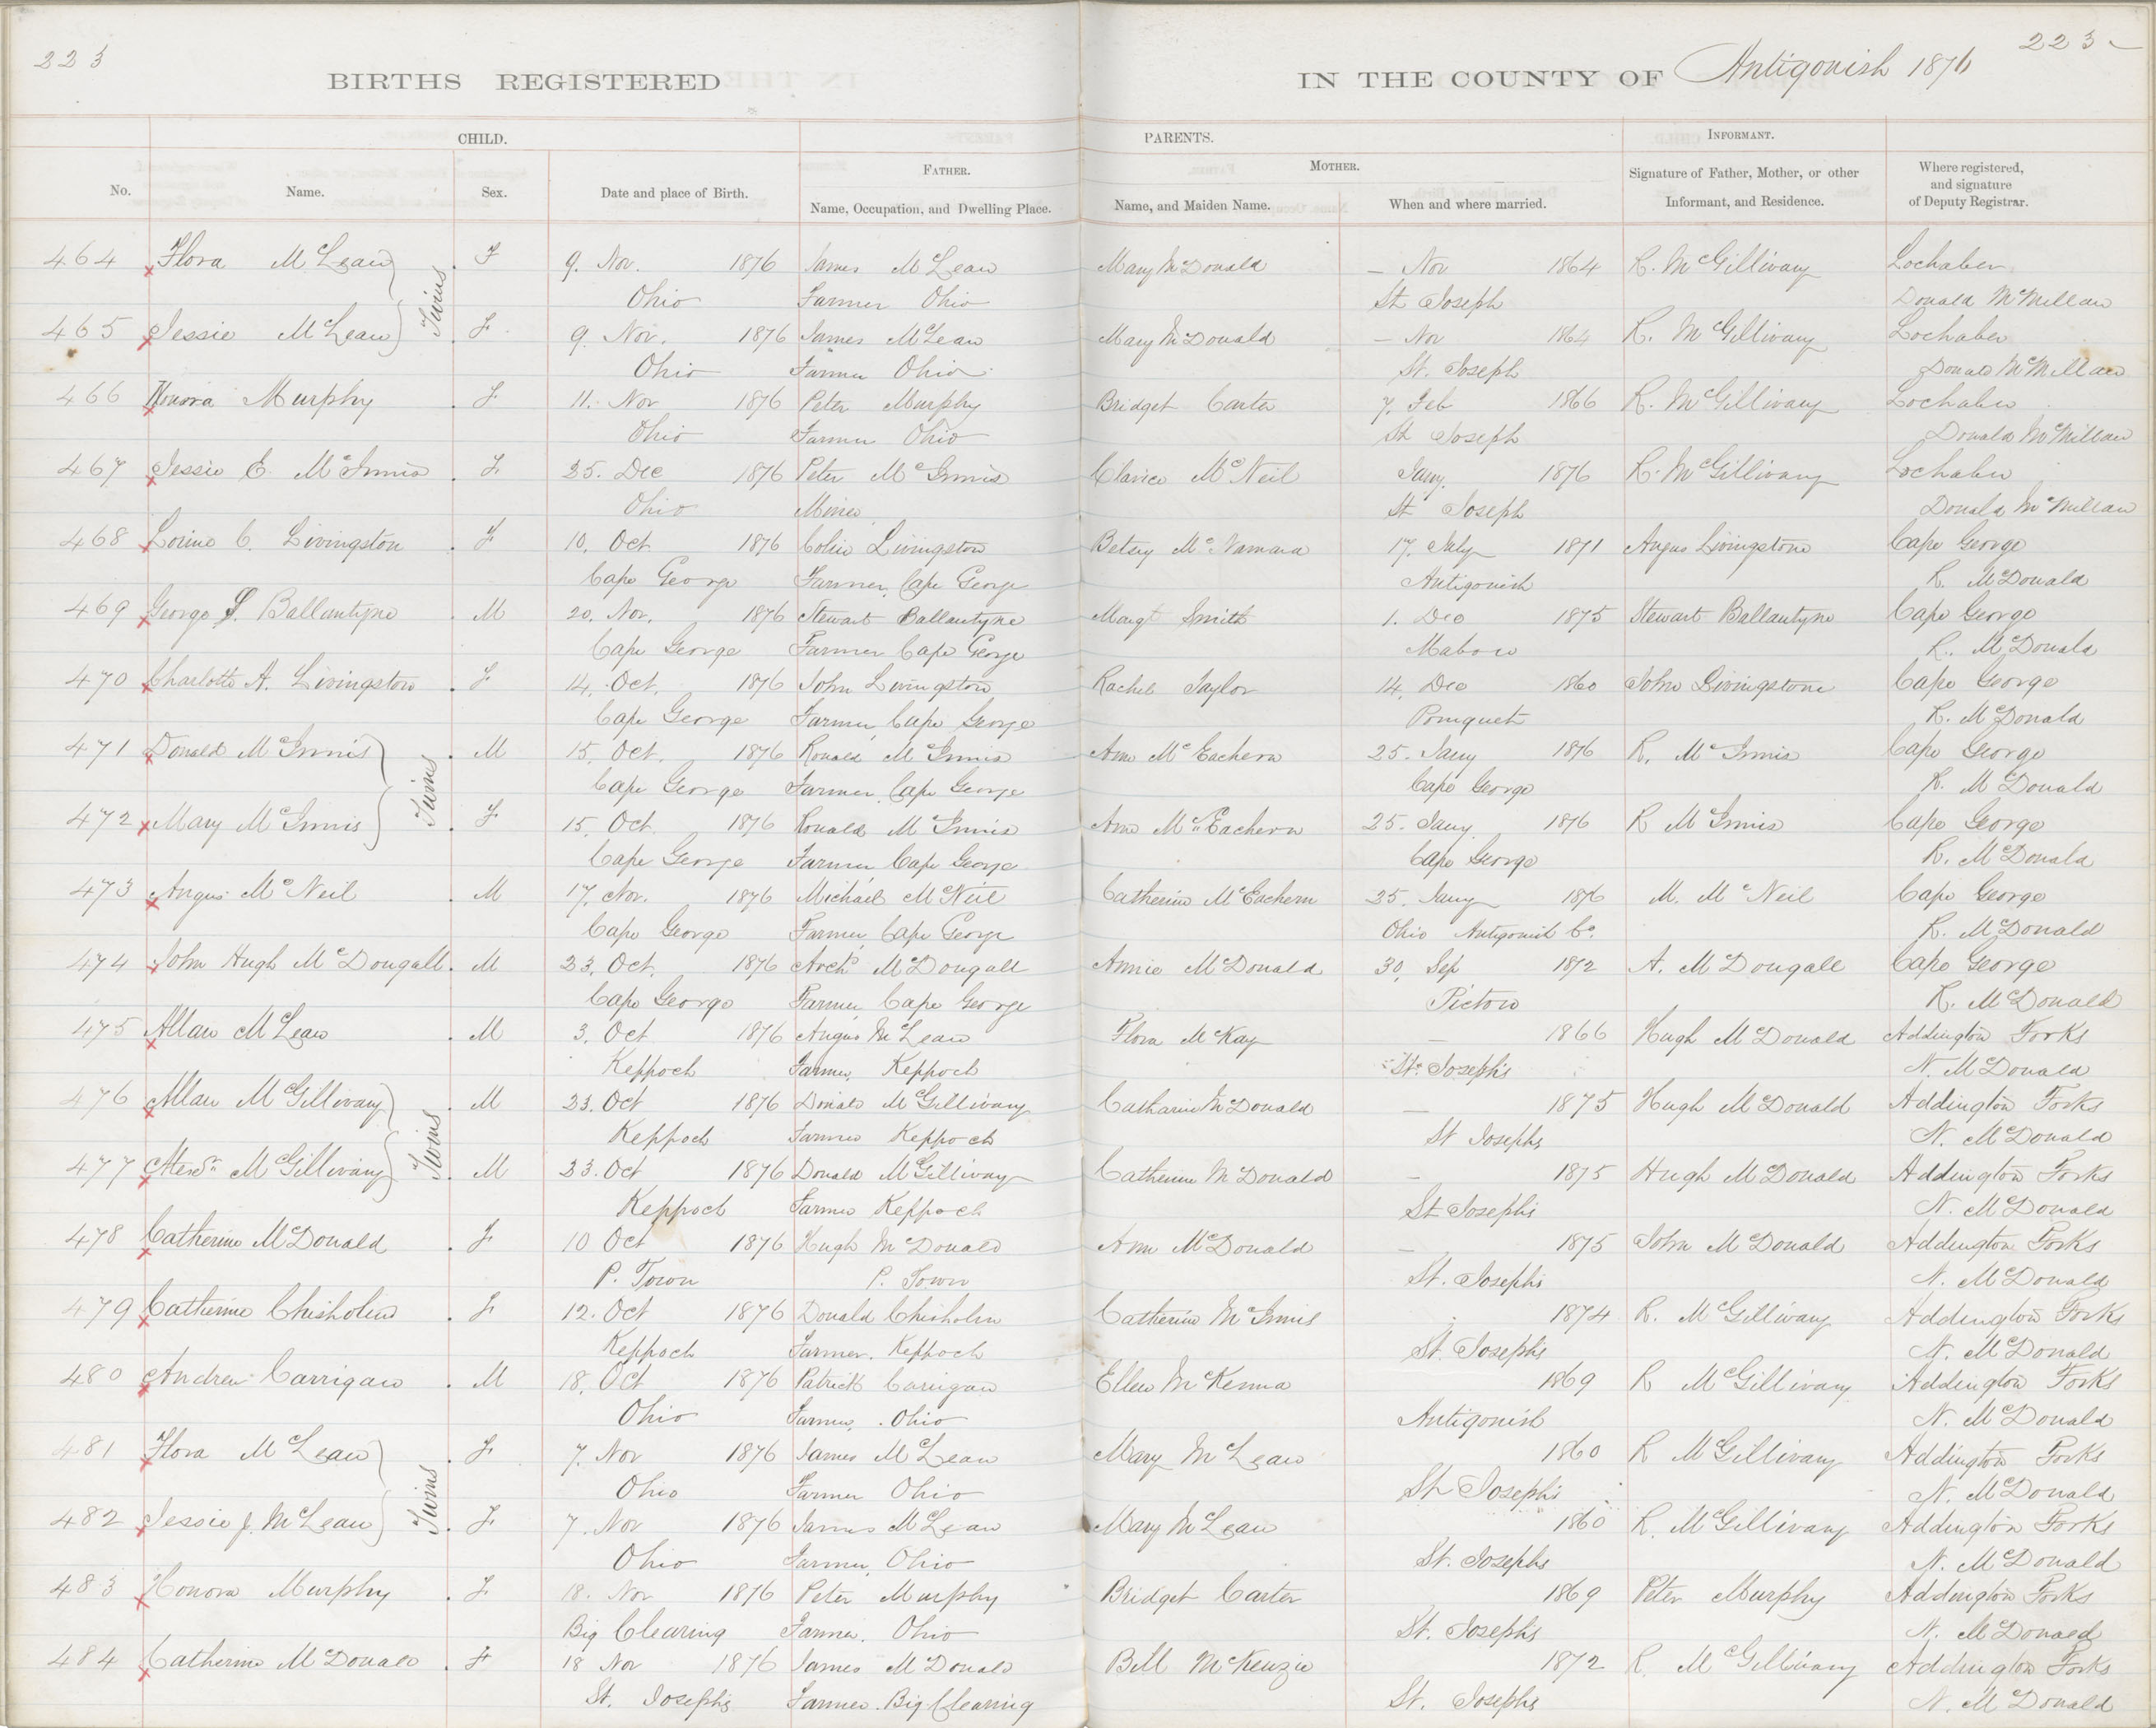 223
223
BIRTHS REGISTERED IN THE COUNTY OF Antigonish 1876
CHILD. PARENTS. INFORMANT.
FATHER. MOTHER.
No. Name. Sex. Date and place of Birth. Name, Occupation, and Dwelling Place. Name, and Maiden Name. When and where married. Signature of Father, Mother, or other Informant, and Residence. Where registered, and signature of Deputy Registrar.
464 Flora McLean Twins F 9. Nov. 1876 James McLean Mary McDonald – Nov 1864 R. McGillivary Lochaber
Ohio Farmer Ohio St Joseph Donald McMillan
465 Jessie McLean F 9. Nov. 1876 James McLean Mary McDonald – Nov 1864 R. McGillivary Lochaber
Ohio Farmer Ohio St. Joseph Donald McMillan
466 Honora Murphy F 11. Nov 1876 Peter Murphy Bridget Carter 7. Feb 1866 R. McGillivary Lochaber
Ohio Farmer Ohio St Joseph Donald McMillan
467 Jessie E. McInnis F 25. Dec 1876 Peter McInnis Clarice McNeil Jany. 1876 R. McGillivary Lochaber
Ohio Miner St Joseph Donald McMillan
468 C. Livingston F 10. Oct 1876 Colin Livingston Betsey McNamara 17. July 1871 Angus Livingstone Cape George
Cape George Farmer, Cape George Antigonish R. McDonald
469 George S. Ballantyne M 20. Nov. 1876 Stewart Ballantyne Margt Smith 1. Dec 1875 Stewart Ballantyne Cape George
Cape George Farmer Cape George Mabou R. McDonald
470 Charlotte A. Livingston F 14. Oct. 1876 John Livingston Rachel Taylor 14. Dec 1860 John Livingstone Cape George
Cape George Farmer, Cape George Pomquet R. McDonald
471 Donald McInnis Twins M 15. Oct. 1876 Ronald McInnis Ann McEachern 25. Jany 1876 R. McInnis Cape George
Cape George Farmer, Cape George Cape George R. McDonald
472 Mary McInnis F 15. Oct 1876 Ronald McInnis Ann McEachern 25. Jany. 1876 R McInnis Cape George
Cape George Farmer Cape George Cape George R. McDonald
473 Angus McNeil M 17. Nov. 1876 Michael McNeil Catherine McEachern 25. Jany 1876 M. McNeil Cape George
Cape George Farmer, Cape George Ohio Antigonish Co. R. McDonald
474 John Hugh McDougall M 23. Oct. 1876 Archd McDougall Annie McDonald 30. Sep 1872 A. McDougall Cape George
Cape George Farmer, Cape George Pictou R. McDonald
475 Allan McLean M 3. Oct 1876 Angus McLean Flora McKay – 1866 Hugh McDonald Addington Forks
Keppoch Farmer, Keppoch St. Josephs N. McDonald
476 Allan McGillivary Twins M 23. Oct 1876 Donald McGillivary Catharine McDonald – 1875 Hugh McDonald Addington Forks
Keppoch Farmer Keppoch St Josephs N. McDonald
477 Alexdr McGillivary M 23. Oct 1876 Donald McGillivary Catherine McDonald – 1875 Hugh McDonald Addington Forks
Keppoch Farmer Keppoch St Josephs N. McDonald
478 Catherine McDonald F 10 Oct 1876 Hugh McDonald Ann McDonald – 1875 John McDonald Addington Forks
P. Town P. Town St. Josephs N. McDonald
479 Catherine Chisholm F 12. Oct 1876 Donald Chisholm Catherine McInnis 1874 R. McGillivary Addington Forks
Keppoch Farmer. Keppoch St. Josephs N. McDonald
480 Andrew Carrigan M 18. Oct 1876 Patrick Carrigan Ellen McKenna 1869 R McGillivary Addington Forks
Ohio Farmer. Ohio Antigonish N. McDonald
481 Flora McLean Twins F 7. Nov 1876 James McLean Mary McLean 1860 R McGillivary Addington Forks
Ohio Farmer Ohio St Josephs N. McDonald
482 Jessie J. McLean F 7. Nov 1876 James McLean Mary McLean 1860 R. McGillivary Addington Forks
Ohio Farmer, Ohio St. Josephs N. McDonald
483 Honora Murphy F 18. Nov 1876 Peter Murphy Bridget Carter 1869 Peter Murphy Addington Forks
Big Clearing Farmer. Ohio St. Josephs N. McDonald
484 Catherine McDonald F 18 Nov 1876 James McDonald Bell McKenzie 1872 R. McGillivary Addington Forks
St. Josephs Farmer. Big Clearing St. Josephs N. McDonald